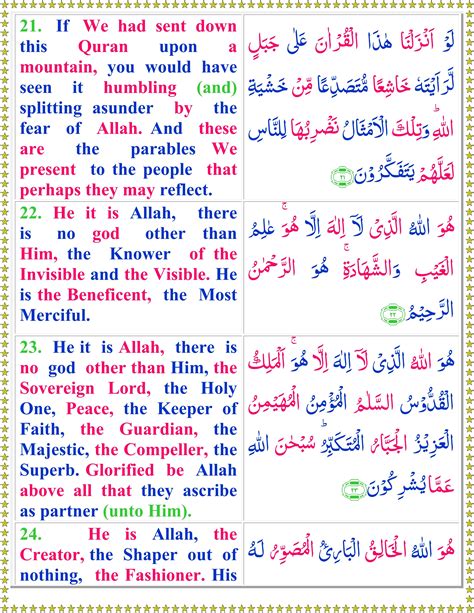 21. If We had sent down
this Quran upon a
mountain, you would have
seen it humbling (and)
splitting asunder by the
fear of Allah. And these
are the parables We
present to the people that
perhaps they may reflect.
لَوْ اَنْزَلْنَا هٰذَا الْقُرْاٰنَ عَلٰى جَبَلٍ
لَّرَاَيْتَهٗ خَاشِعًا مُّتَصَدِّعًا مِّنْ خَشْيَةِ
اللّٰهِ ؕ وَتِلْكَ الْاَمْثَالُ نَضْرِبُهَا لِلنَّاسِ
لَعَلَّهُمْ يَتَفَكَّرُوْنَ ۲۱
22. He it is Allah, there
is no god other than
Him, the Knower of the
Invisible and the Visible. He
is the Beneficent, the Most
Merciful.
هُوَ اللّٰهُ الَّذِىْ لَاۤ اِلٰهَ اِلَّا هُوَ ۚ عٰلِمُ
الْغَيْبِ وَالشَّهَادَةِ ۚ هُوَ الرَّحْمٰنُ
الرَّحِيْمُ ۲۲
23. He it is Allah, there is
no god other than Him, the
Sovereign Lord, the Holy
One, Peace, the Keeper of
Faith, the Guardian, the
Majestic, the Compeller, the
Superb. Glorified be Allah
above all that they ascribe
as partner (unto Him).
هُوَ اللّٰهُ الَّذِىْ لَاۤ اِلٰهَ اِلَّا هُوَ ۚ اَلْمَلِكُ
الْقُدُّوْسُ السَّلٰمُ الْمُؤْمِنُ الْمُهَيْمِنُ
الْعَزِيْزُ الْجَبَّارُ الْمُتَكَبِّرُ ؕ سُبْحٰنَ اللّٰهِ
عَمَّا يُشْرِكُوْنَ ۲۳
24. He is Allah, the
Creator, the Shaper out of
nothing, the Fashioner. His
هُوَ اللّٰهُ الْخَالِقُ الْبَارِئُ الْمُصَوِّرُ لَهُ